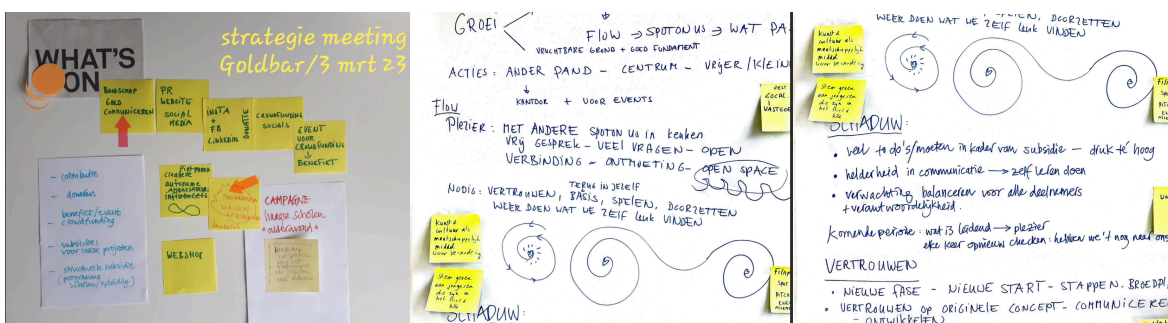 strategie meeting
Goldbar/3 mrt 23
WHAT'S
ON
BOODSCHAP
GOED
COMMUNICEREN
PR
WEBSITE
SOCIAL
MEDIA
INSTA
+
FB
LINKEDIN
DONATIE
CROWDFUNDING
SOCIALS
EVENT
VOOR
CROWDFUNDING
↓
BENEFIET
- contributie
- donaties
- benefiet/event
crowdfunding
- subsidies
voor losse projecten
- structurele subsidie
autonome
AMBASSADEURS
influencers
CAMPAGNE
haagse scholen
WEBSHOP
GROEI
FLOW → SPOTONUS → WAT PA
VRUCHTBARE GROND + GOED FUNDAMENT
ACTIES: ANDER PAND - CENTRUM - VRIJER/KLEIN
KANTOOR + VOOR EVENTS
Flow
PLEZIER: MET ANDERE SPOTON US IN keuken
VRIJ GESPREK - VEEL VRAGEN - OPEN
VERBINDING - ONTMOETING - OPEN SPACE
LOCAL
VASTGOE
NODIG: VERTROUWEN, TERUG IN JEZELF
BASIS, SPELEN, DOORZETTEN
WEER DOEN WAT WE ZELF leuk VINDEN
kunst &
cultuur als
maatschappelijk
middel
voor verandering
Stem geven
aan jongeren
die zijn in
het
SCHADUW:
WEER DOEN WAT WE ZELF leuk VINDEN
SPELEN, DOORZETTEN
kunst &
cultuur als
maatschappelijk
middel
voor verandering
Stem geven
aan jongeren
die zijn in
het
SCHADUW:
• veel to do's/moeten in kader van subsidie - druk té hoog
• helderheid in communicatie → zelf laten doen
• verwachting balanceren voor alle deelnemers
+ verantwoordelijkheid.
Komende periode: wat is leidend → plezier
elke keer opnieuw checken: hebben we 't nog need ons
VERTROUWEN
• NIEUWE FASE - NIEUWE START - STAPPEN - BROEDPL
• VERTROUWEN OP ORIGINELE CONCEPT - COMMUNICERE
- ONTWIKKELEN